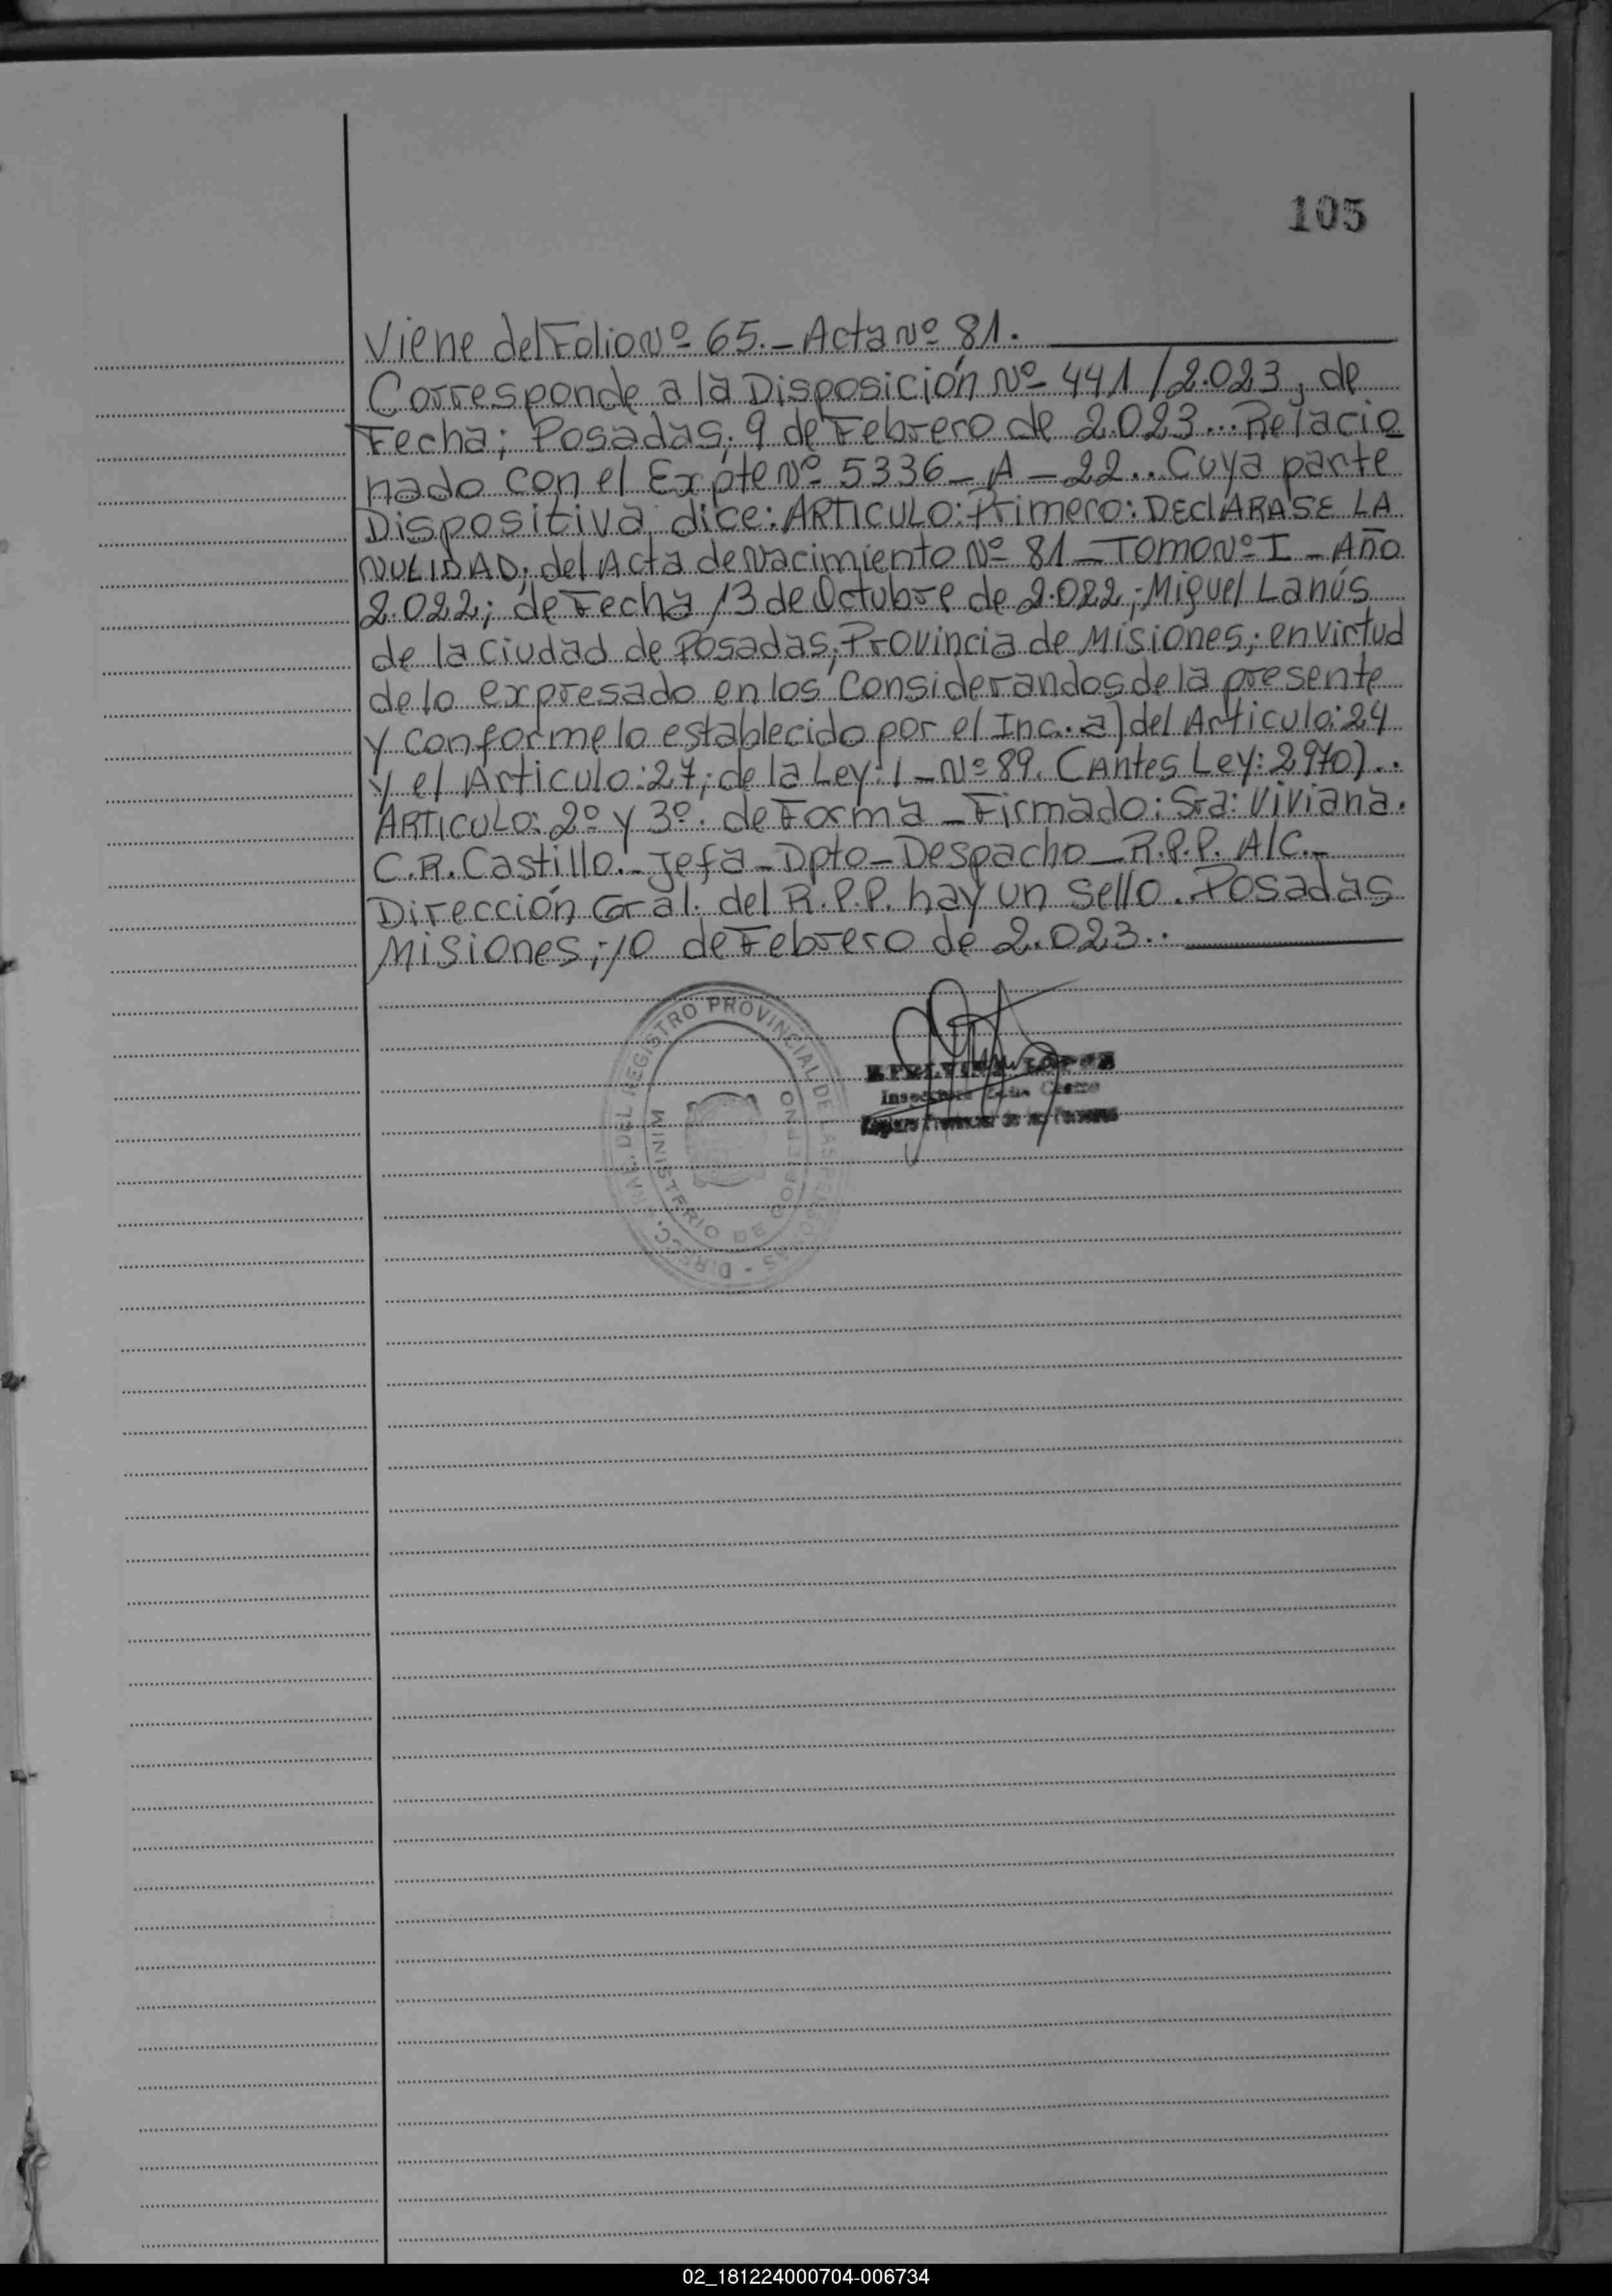 105
Viene del Folio Nº 65.- Acta Nº 81.
Corresponde a la Disposición Nº 441/2.023, de
Fecha; Posadas; 9 de Febrero de 2.023... Relacio
nado con el Expte Nº 5336-A-22.. Cuya parte
Dispositiva dice: ARTICULO: Primero: DEClARASE LA
NULIDAD; del Acta de Nacimiento Nº 81-Tomo Nº I-Año
2.022; de Fecha 13 de Octubre de 2.022; Miguel Lanús
de la Ciudad de Posadas; Provincia de Misiones; en virtud
de lo expresado en los Considerandos de la presente
y Conforme lo establecido por el Inc. a) del Articulo: 24
y el Articulo: 27; de la Ley: I-Nº 89. (Antes Ley: 2970)..
ARTICULO: 2º y 3º. de Forma - Firmado: Sra: Viviana.
C.R. Castillo.-Jefa-Dpto-Despacho-R.P.P. A/C.-
Dirección Gral. del R.P.P. hay un sello. Posadas
Misiones; 10 de Febrero de 2.023..
DIRECC. GRAL. DEL REGISTRO PROVINCIAL DE LAS PERSONAS -
MINISTERIO DE GOBIERNO
LOPEZ
Registro Provincial de las Personas
02_181224000704-006734